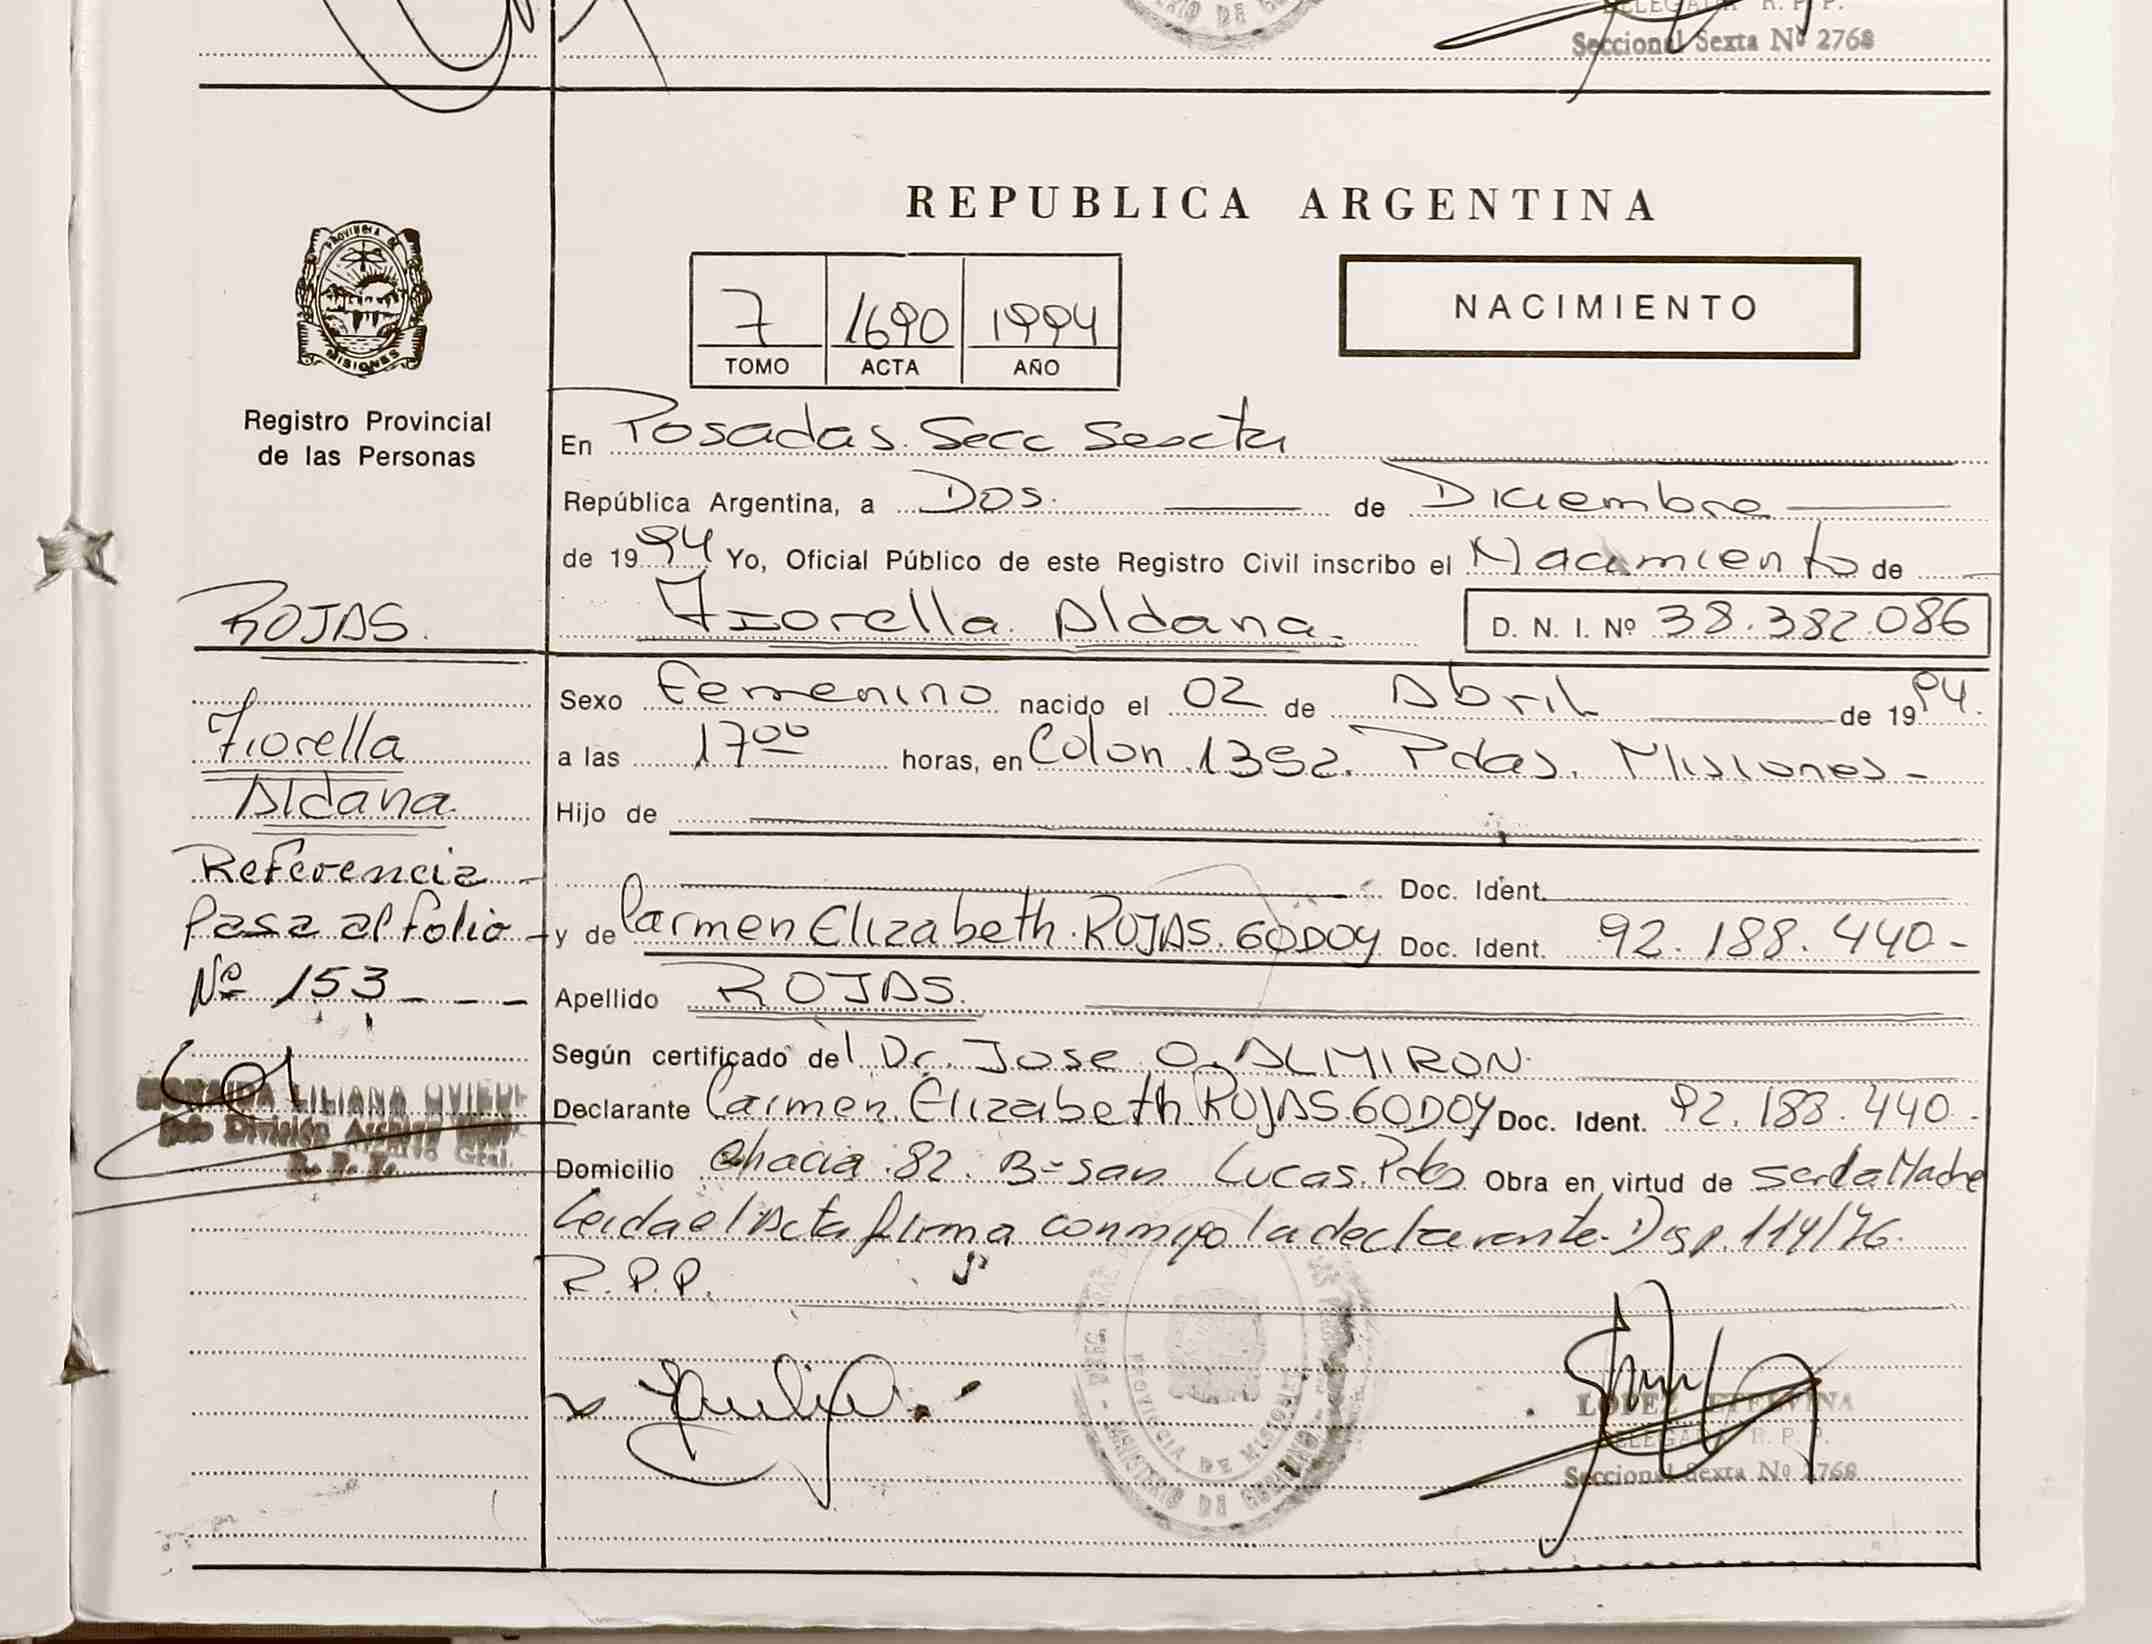 DELEGADA R. P. P.
Seccional Sexta Nº 2768
REPUBLICA ARGENTINA
PROVINCIA DE
MISIONES
Registro Provincial
de las Personas
7 1690 1994
TOMO ACTA AÑO
NACIMIENTO
En Posadas. Secc Sexta
República Argentina, a Dos. de Diciembre
de 1994 Yo, Oficial Público de este Registro Civil inscribo el Nacimiento de
ROJAS.
Fiorella Aldana. D. N. I. Nº 38.382.086
Sexo Femenino nacido el 02 de Abril de 1994.
Fiorella
a las 17⁰⁰ horas, en Colon 1352. Pdas. Misiones-
Aldana.
Hijo de
Referencia
Doc. Ident.
Pasa al folio
y de Carmen Elizabeth. ROJAS. GODOY Doc. Ident. 92.188.440-
Nº 153
Apellido ROJAS.
Según certificado del Dr. Jose O. ALMIRON.
LILIANA
División Archivo Gral.
R. P. P.
Declarante Carmen Elizabeth ROJAS. GODOY Doc. Ident. 92.188.440-
Domicilio Chacra 82. Bº San Lucas. Pdas Obra en virtud de ser la Madre
Leida el Acta firma conmigo la declarante. Disp. 114/76.
R.P.P.
PROVINCIA DE MISIONES
MINISTERIO DE GOBIERNO
LOPEZ ETELVINA
DELEGADA R. P. P.
Seccional Sexta Nº 2768